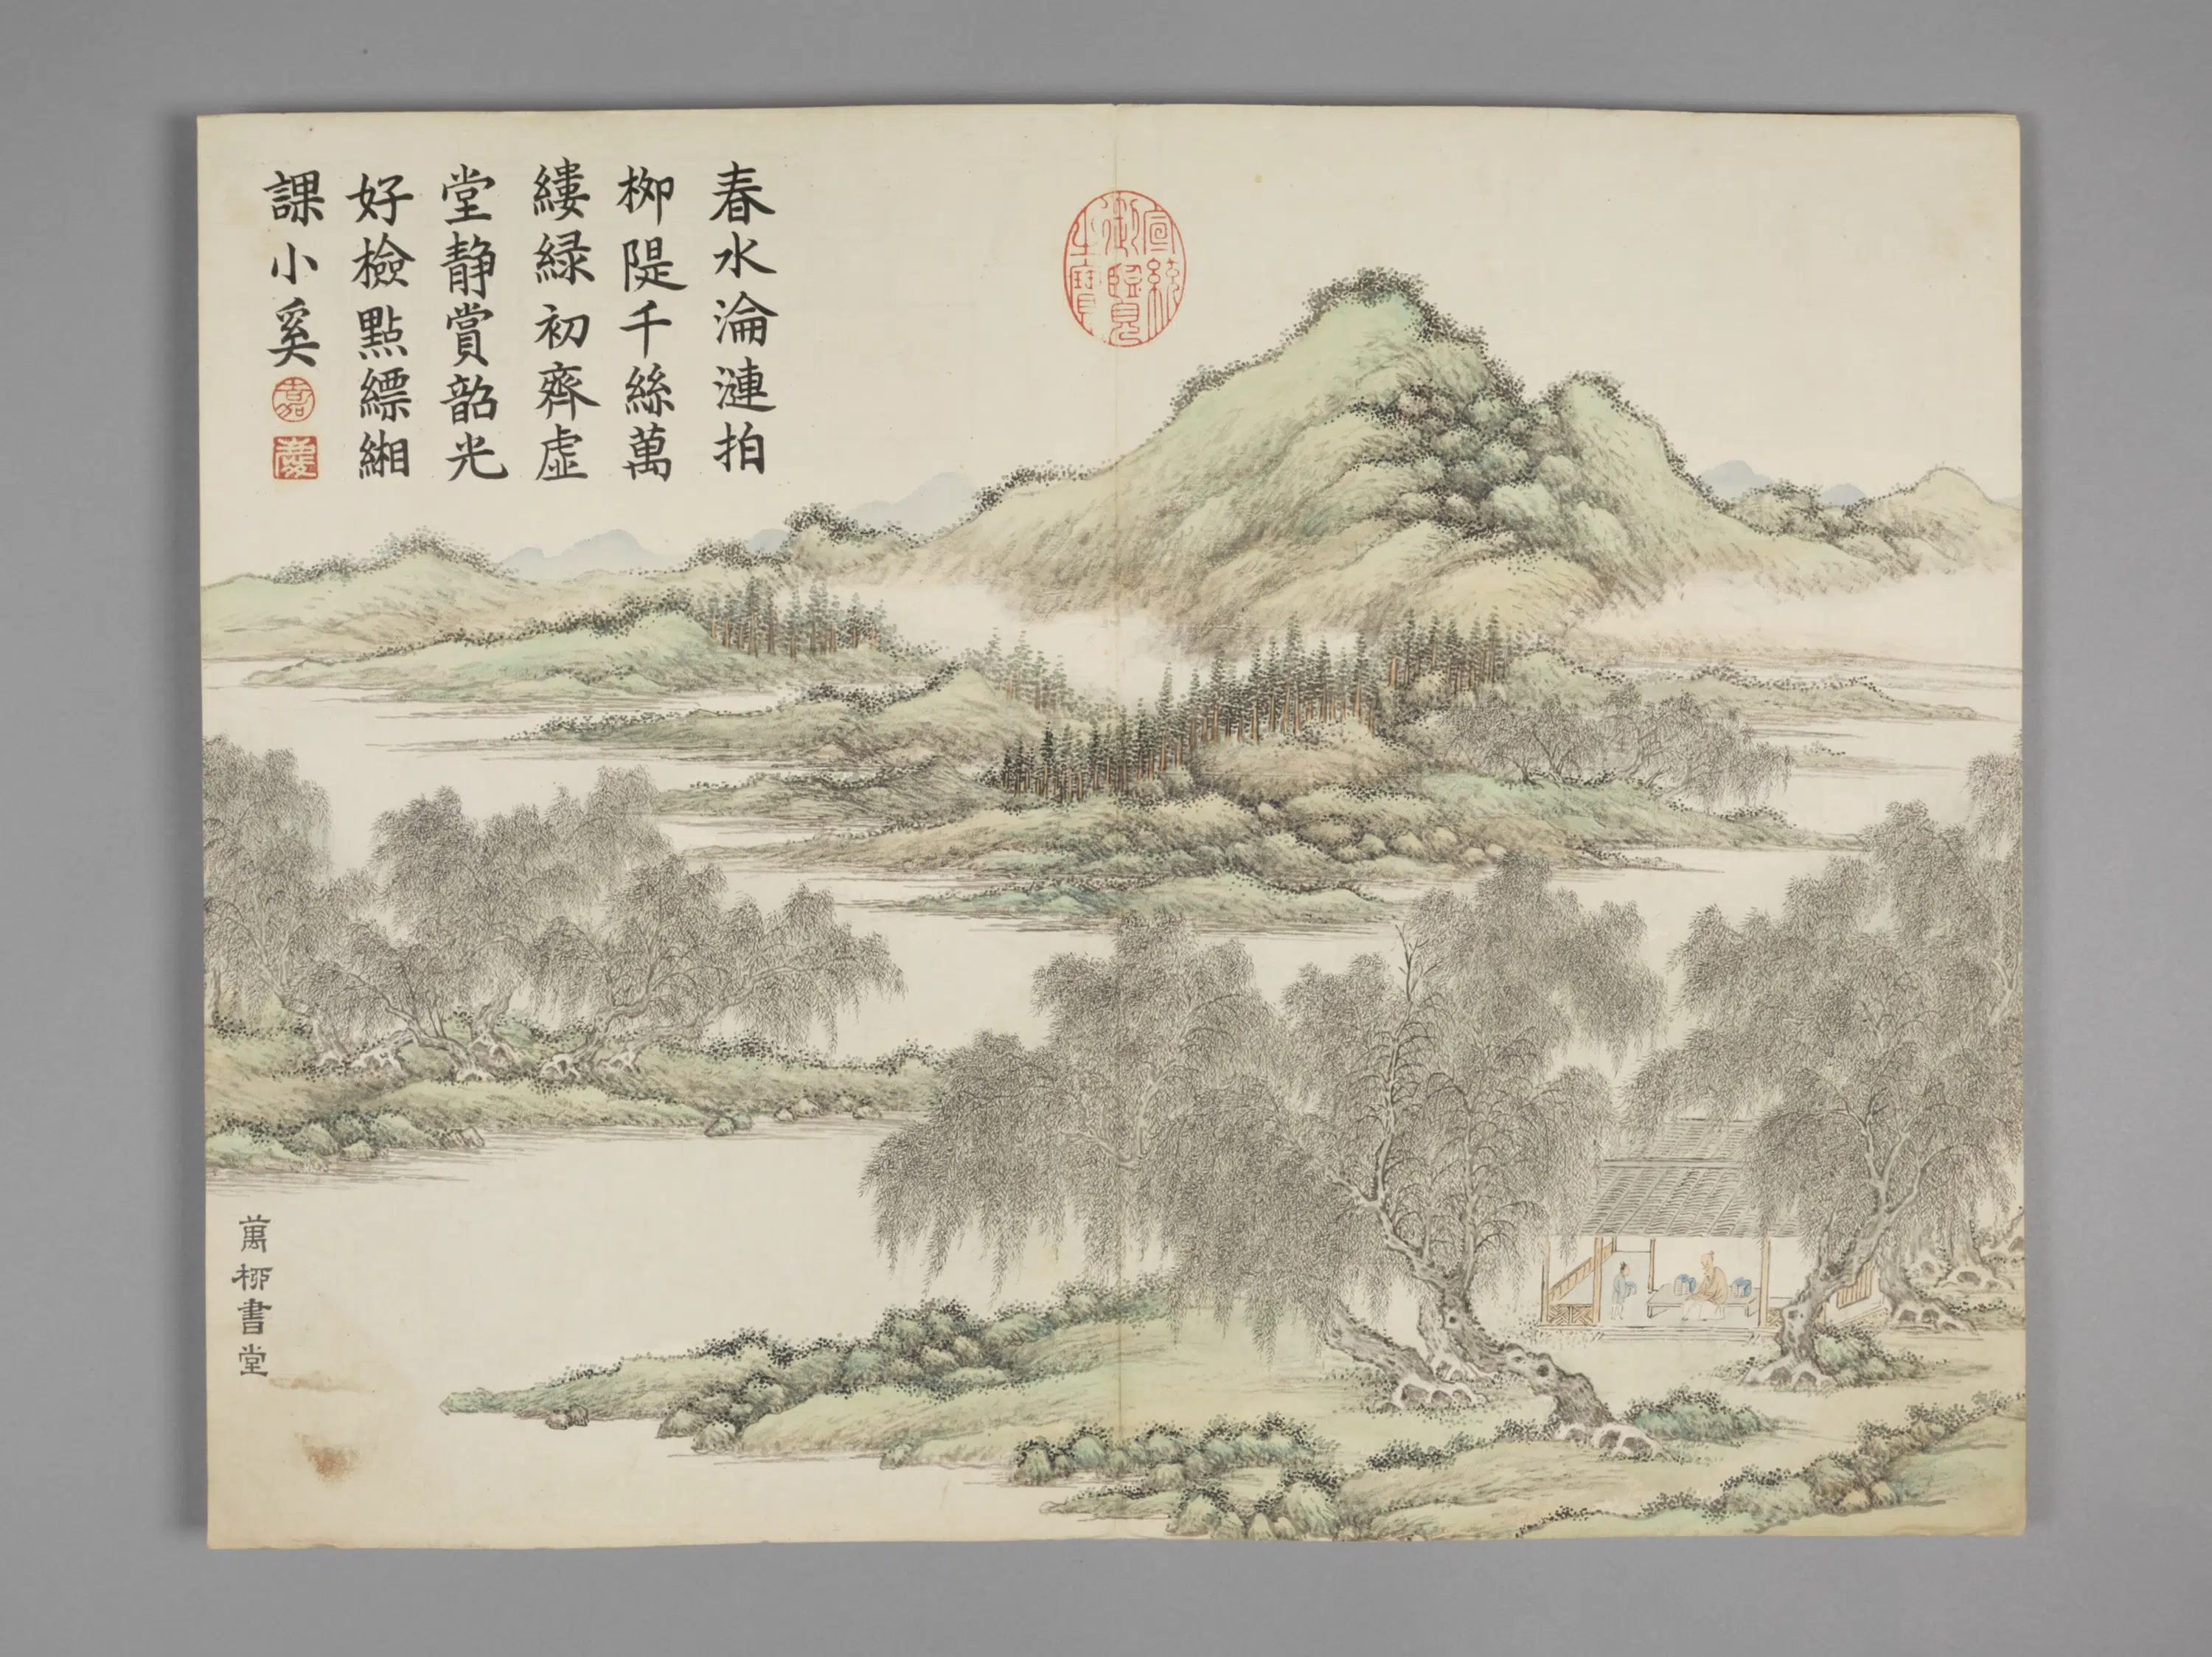 春水淪漣拍
柳隄千絲萬
縷緑初齊虛
堂静賞韶光
好檢點縹緗
課小奚
嘉
慶
宣統
御覽
之寶
萬柳書堂